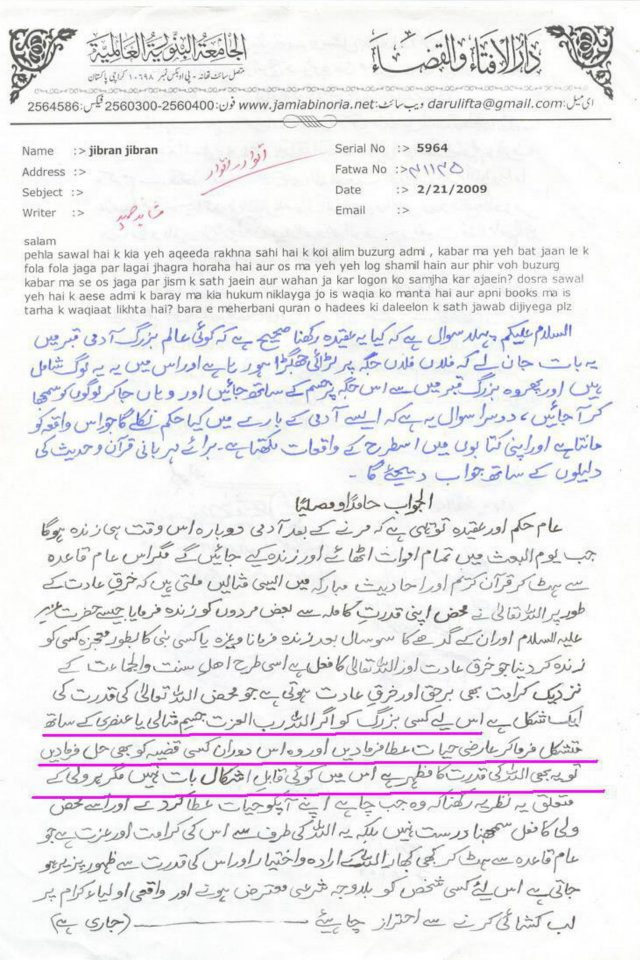 دار الإفتاء والقضاء
الجامعة البنورية العالمية
متصل سائٹ تھانہ - پی او بکس نمبر ۱۰۶۹۸ کراچی پاکستان
ای میل: darulifta@gmail.com ویب سائٹ: www.jamiabinoria.net فون: 2560300-2560400 فیکس: 2564586
Name :> jibran jibran
Address :>
Sebject :>
Writer :>
Serial No :> 5964
Fatwa No :> ۴۱۱۳۵
Date :> 2/21/2009
Email :>
salam
pehla sawal hai k kia yeh aqeeda rakhna sahi hai k koi alim buzurg admi , kabar ma yeh bat jaan le k
fola fola jaga par lagai jhagra horaha hai aur os ma yeh yeh log shamil hain aur phir voh buzurg
kabar ma se os jaga par jism k sath jaein aur wahan ja kar logon ko samjha kar ajaein? dosra sawal
yeh hai k aese admi k baray ma kia hukum niklayga jo is waqia ko manta hai aur apni books ma is
tarha k waqiaat likhta hai? bara e meherbani quran o hadees ki daleelon k sath jawab dijiyega plz
السلام علیکم، پہلا سوال ہے کہ کیا یہ عقیدہ رکھنا صحیح ہے کہ کوئی عالم بزرگ آدمی قبر میں
یہ بات جان لے کہ فلاں فلاں جگہ پر لڑائی جھگڑا ہو رہا ہے اور اس میں یہ یہ لوگ شامل
ہیں اور پھر وہ بزرگ قبر میں سے اس جگہ پر جسم کے ساتھ جائیں اور وہاں جا کر لوگوں کو سمجھا
کر آ جائیں، دوسرا سوال یہ ہے کہ ایسے آدمی کے بارے میں کیا حکم نکلے گا جو اس واقعہ کو
مانتا ہے اور اپنی کتابوں میں اسطرح کے واقعات لکھتا ہے۔ برائے مہربانی قرآن و حدیث کی
دلیلوں کے ساتھ جواب دیجئے گا۔
الجواب حامدا ومصلیا
عام حکم اور عقیدہ تو یہی ہے کہ مرنے کے بعد آدمی دوبارہ اس وقت ہی زندہ ہوگا
جب یوم البعث میں تمام اموات اٹھائے اور زندہ کیے جائیں گے مگر اس عام قاعدہ
سے ہٹ کر قرآن کریم اور احادیث مبارکہ میں ایسی مثالیں ملتی ہیں کہ خرق عادت کے
طور پر اللہ تعالی نے محض اپنی قدرت کاملہ سے بعض مردوں کو زندہ فرمایا جیسے حضرت عزیر
علیہ السلام اور ان کے گدھے کا سو سال بعد زندہ فرمانا وغیرہ یا کسی نبی کا بطور معجزہ کسی کو
زندہ کر دینا جو خرق عادت اور اللہ تعالی کا فعل ہے اسی طرح اھل سنت والجماعت کے
نزدیک کرامت بھی برحق اور خرق عادت ہوتی ہے جو محض اللہ تعالی کی قدرت کی
ایک شکل ہے اس لیے کسی بزرگ کو اگر اللہ رب العزت جسم مثالی یا عنصری کے ساتھ
متشکل فرما کر عارضی حیات عطا فرمادیں اور وہ اس دوران کسی قضیہ کو بھی حل فرمادیں
تو یہ بھی اللہ کی قدرت کا مظہر ہے اس میں کوئی قابل اشکال بات نہیں مگر ہر ولی کے
متعلق یہ نظریہ رکھنا کہ وہ جب چاہے اپنے آپکو حیات عطا کر دے اور اسے محض
ولی کا فعل سمجھنا درست نہیں بلکہ یہ اللہ کی طرف سے اس کی کرامت اور عزت ہے جو
عام قاعدہ سے ہٹ کر کبھی کبھار اللہ کے ارادہ واختیار اور اس کی قدرت سے ظہور پزیر ہو
جاتی ہے اس لئے کسی شخص کو بلاوجہ شرعی معترض ہونے اور واقعی اولیاء کرام پر
لب کشائی کرنے سے احتراز چاہیئے (جاری ہے)